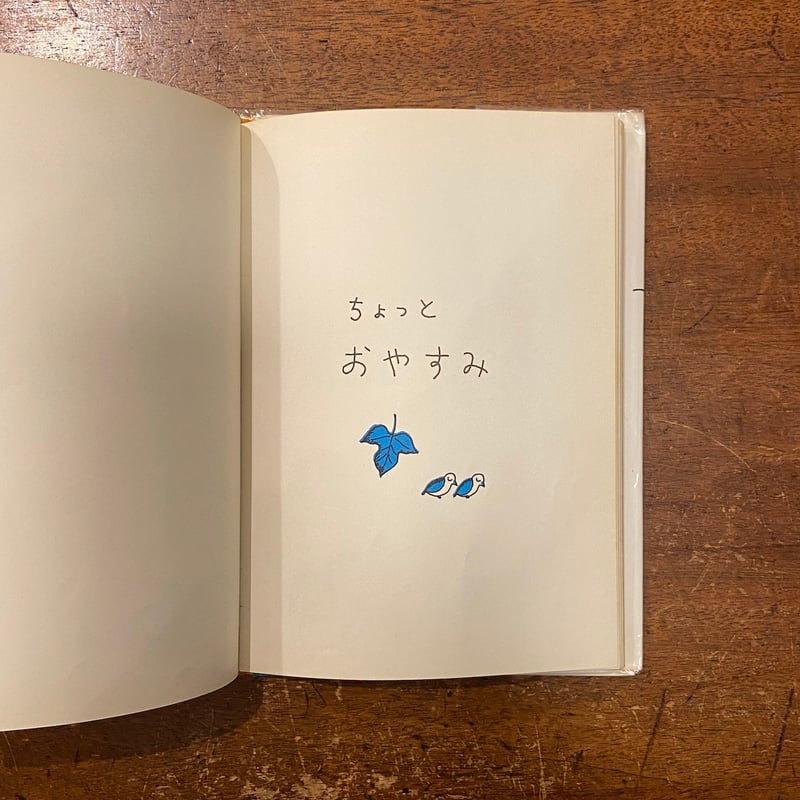 ちょっと
おやすみ